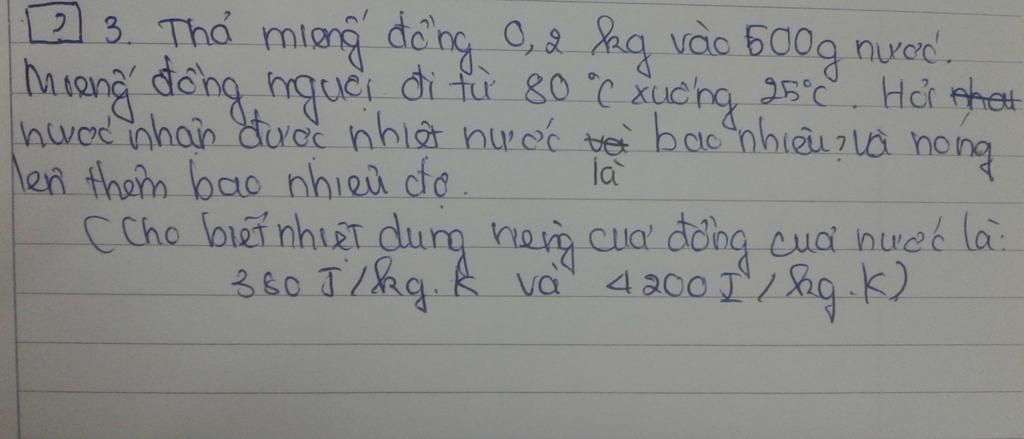 ? 3. Thả miếng đồng 0,2 kg vào 500g nước.
Miếng đồng nguội đi từ 80°C xuống 25°C. Hỏi
nước nhận được nhiệt nước là bao nhiêu? Và nóng
lên thêm bao nhiêu độ.
(Cho biết nhiệt dung riêng của đồng của nước là:
380 J/kg.K và 4200J/kg.K)